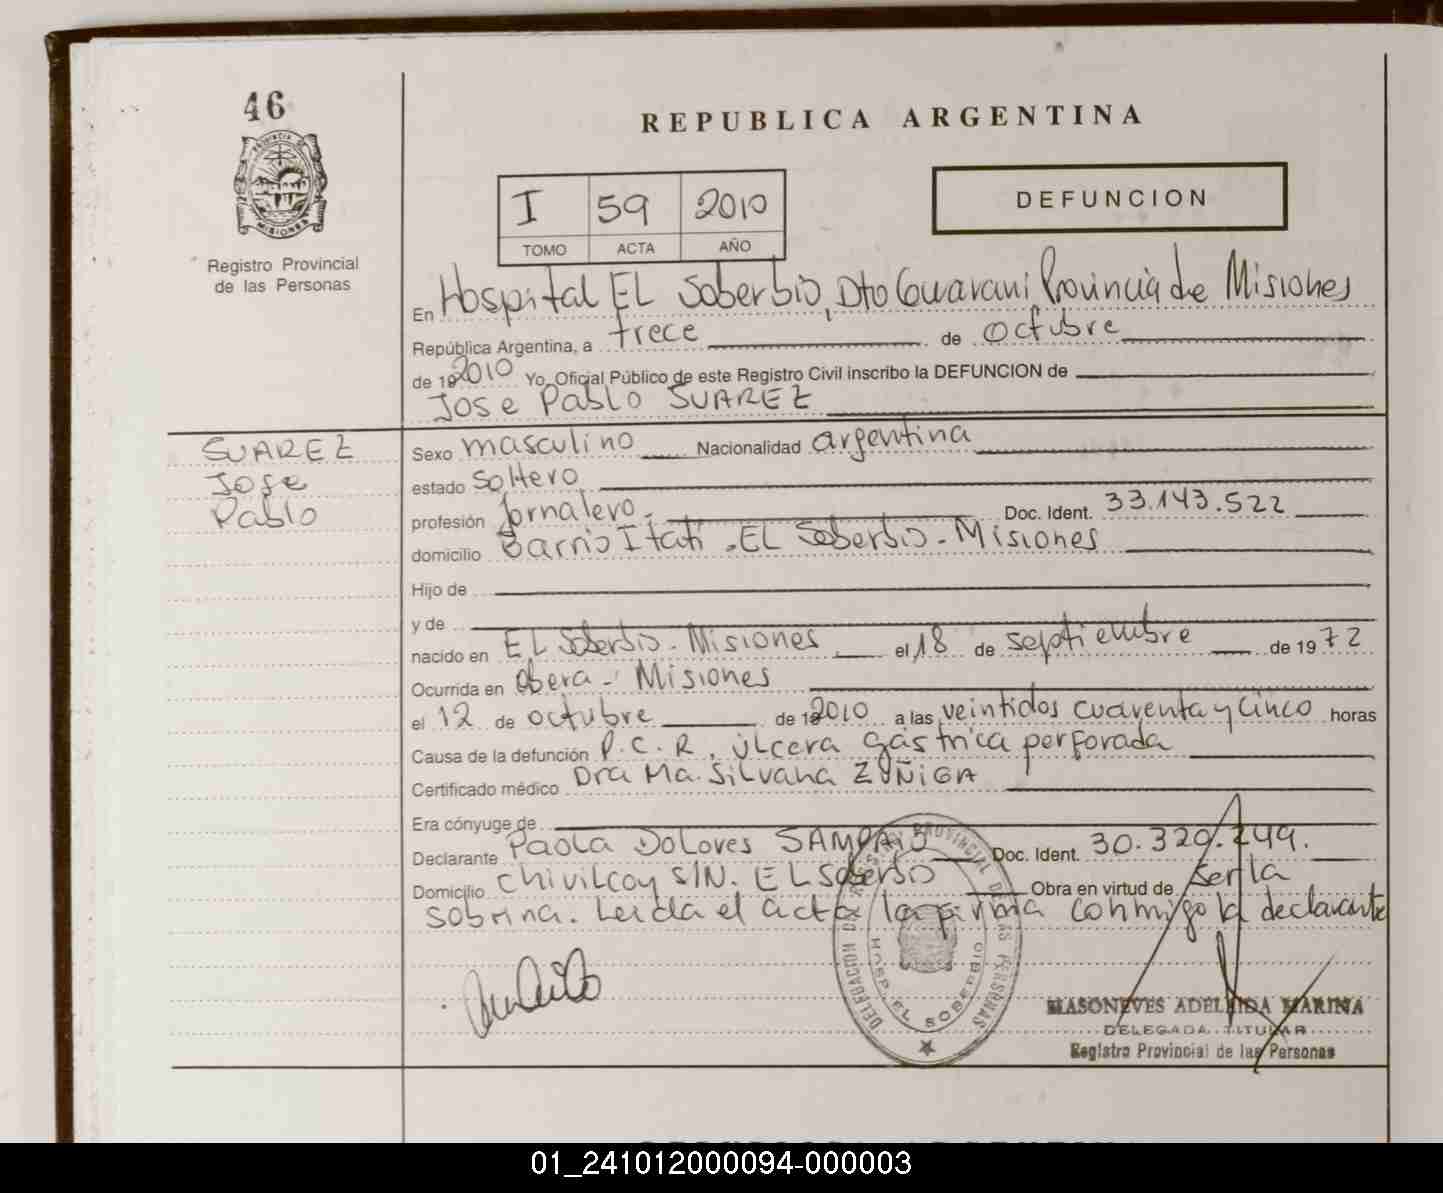 46
REPUBLICA ARGENTINA
PROVINCIA DE
MISIONES
Registro Provincial
de las Personas
I 59 2010
TOMO ACTA AÑO
DEFUNCION
En Hospital EL Soberbio, Dto Guarani, Provincia de Misiones
República Argentina, a trece de octubre
de 2010 Yo, Oficial Público de este Registro Civil inscribo la DEFUNCION de
Jose Pablo SUAREZ
SUAREZ
Jose
Pablo
Sexo masculino Nacionalidad argentina
estado soltero
profesión Jornalero. Doc. Ident. 33.143.522
domicilio Barrio Itati. EL Soberbio. Misiones
Hijo de
y de
nacido en EL Soberbio. Misiones el 18 de septiembre de 1972
Ocurrida en Obera - Misiones
el 12 de octubre de 2010 a las veintidos cuarenta y cinco horas
Causa de la defunción P.C.R, úlcera gástrica perforada
Certificado médico Dra Ma. Silvana ZUÑIGA
Era cónyuge de
Declarante Paola Dolores SAMPAIO Doc. Ident. 30.320.249.
Domicilio Chivilcoy S/N. EL Soberbio Obra en virtud de ser la
sobrina. Leida el acta la firma conmigo la declarante
DELEGACION DE REGISTRO PROVINCIAL DE LAS PERSONAS
HOSP. EL SOBERBIO
MASONEVES ADELAIDA MARINA
DELEGADA TITULAR
Registro Provincial de las Personas
01_241012000094-000003